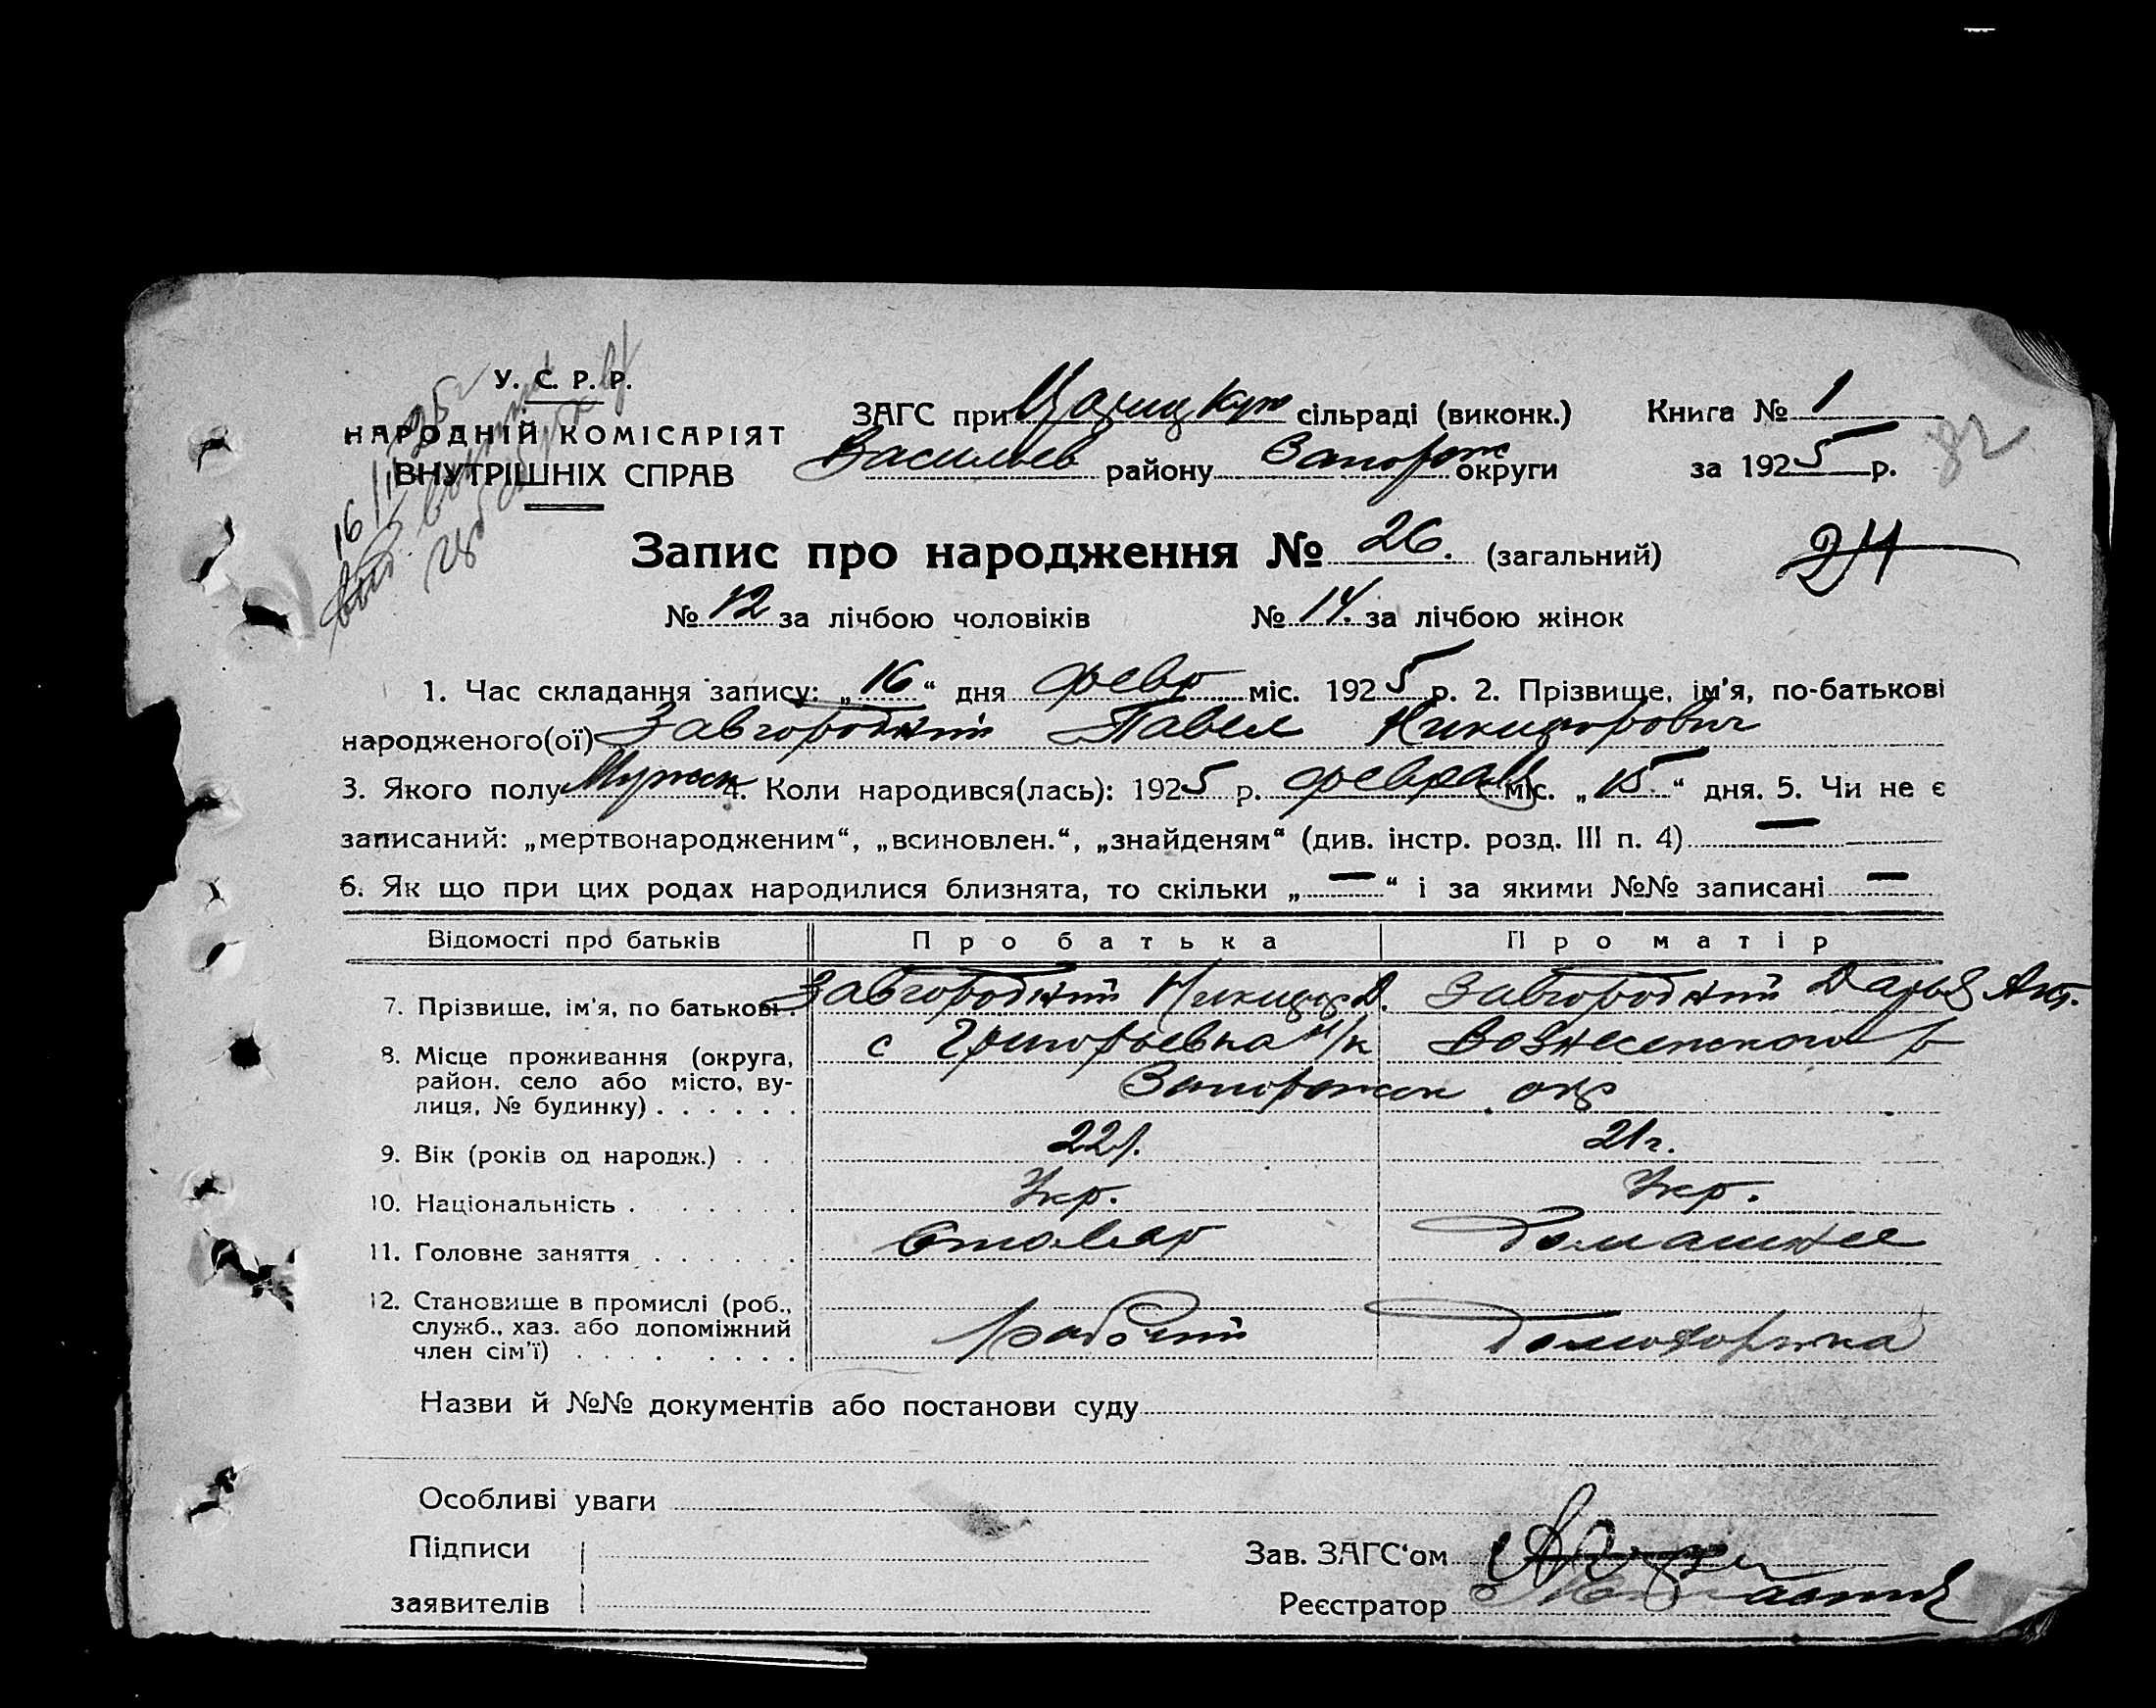 У. С. Р. Р.
НАРОДНІЙ КОМІСАРІЯТ
ВНУТРІШНІХ СПРАВ
16/II 1925 г
ЗАГС при Цариц Кут сільраді (виконк.) Книга № 1
Васильев району Запорож округи за 1925 р.
82
Запис про народження № 26. (загальний)
24
№ 12 за лічбою чоловіків № 14. за лічбою жінок
1. Час складання запису: „16“ дня февр міс. 1925 р. 2. Прізвище, ім’я, по-батькові
народженого(ої) Завгородний Павел Никифорович
3. Якого полу Мужск 4. Коли народився(лась): 1925 р. февраль міс. „15.“ дня. 5. Чи не є
записаний: „мертвонародженим“, „всиновлен.“, „знайденям“ (див. інстр. розд. III п. 4) —
6. Як що при цих родах народилися близнята, то скільки „—“ і за якими №№ записані —
Відомості про батьків Про батька Про матір
7. Прізвище, ім’я, по батькові . Завгородний Никифор Д. Завгородний Дарья Ант.
8. Місце проживання (округа, с Григорьевка н/к Вознесенского р
район, село або місто, ву- Запорожск окр
лиця, № будинку) . . . . . .
9. Вік (років од народж.) . . . 22 г. 21 г.
10. Національність . . . . . . Укр. Укр.
11. Головне заняття . . . . . . Столяр Домашнее
12. Становище в промислі (роб.,
служб., хаз. або допоміжний рабочий Домохозяйка
член сім’ї) . . . . . . . .
Назви й №№ документів або постанови суду
Особливі уваги
Підписи Зав. ЗАГС‘ом
заявителів Реєстратор